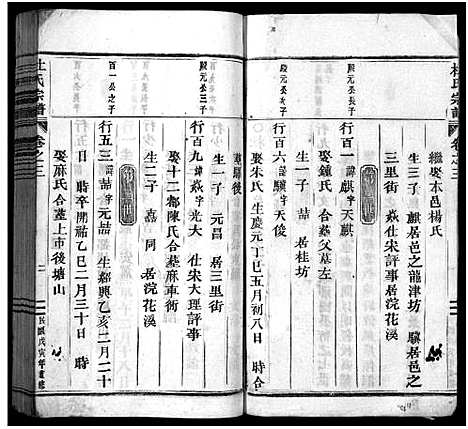 杜氏宗譜
卷之三
繼娶本邑楊氏
生三子 麒居邑之龍津坊 驥居邑之
三里街 焱仕宋評事居浣花溪
殿元公長子
行百一 諱麒字天麟
娶鍾氏合墓父墓左
生一子 喆 居桂坊
殿元公次子
行百六 諱驥字天俊
娶朱氏 生慶元丁巳五月初八日 時合
墓驛後
生一子 元昌 居三里街
殿元公三子
行百九 諱焱字光大 仕宋大理評事
娶十二都陳氏合墓麻車衕
生二子 嘉 同 居浣花溪
百一公之子
行五三 諱喆字元 生紹興乙亥二月二十
日 時卒開禧乙丑二月三十日 時
娶麻氏合墓上市後塘山
杜氏宗譜
卷之三
民國戊寅年重修